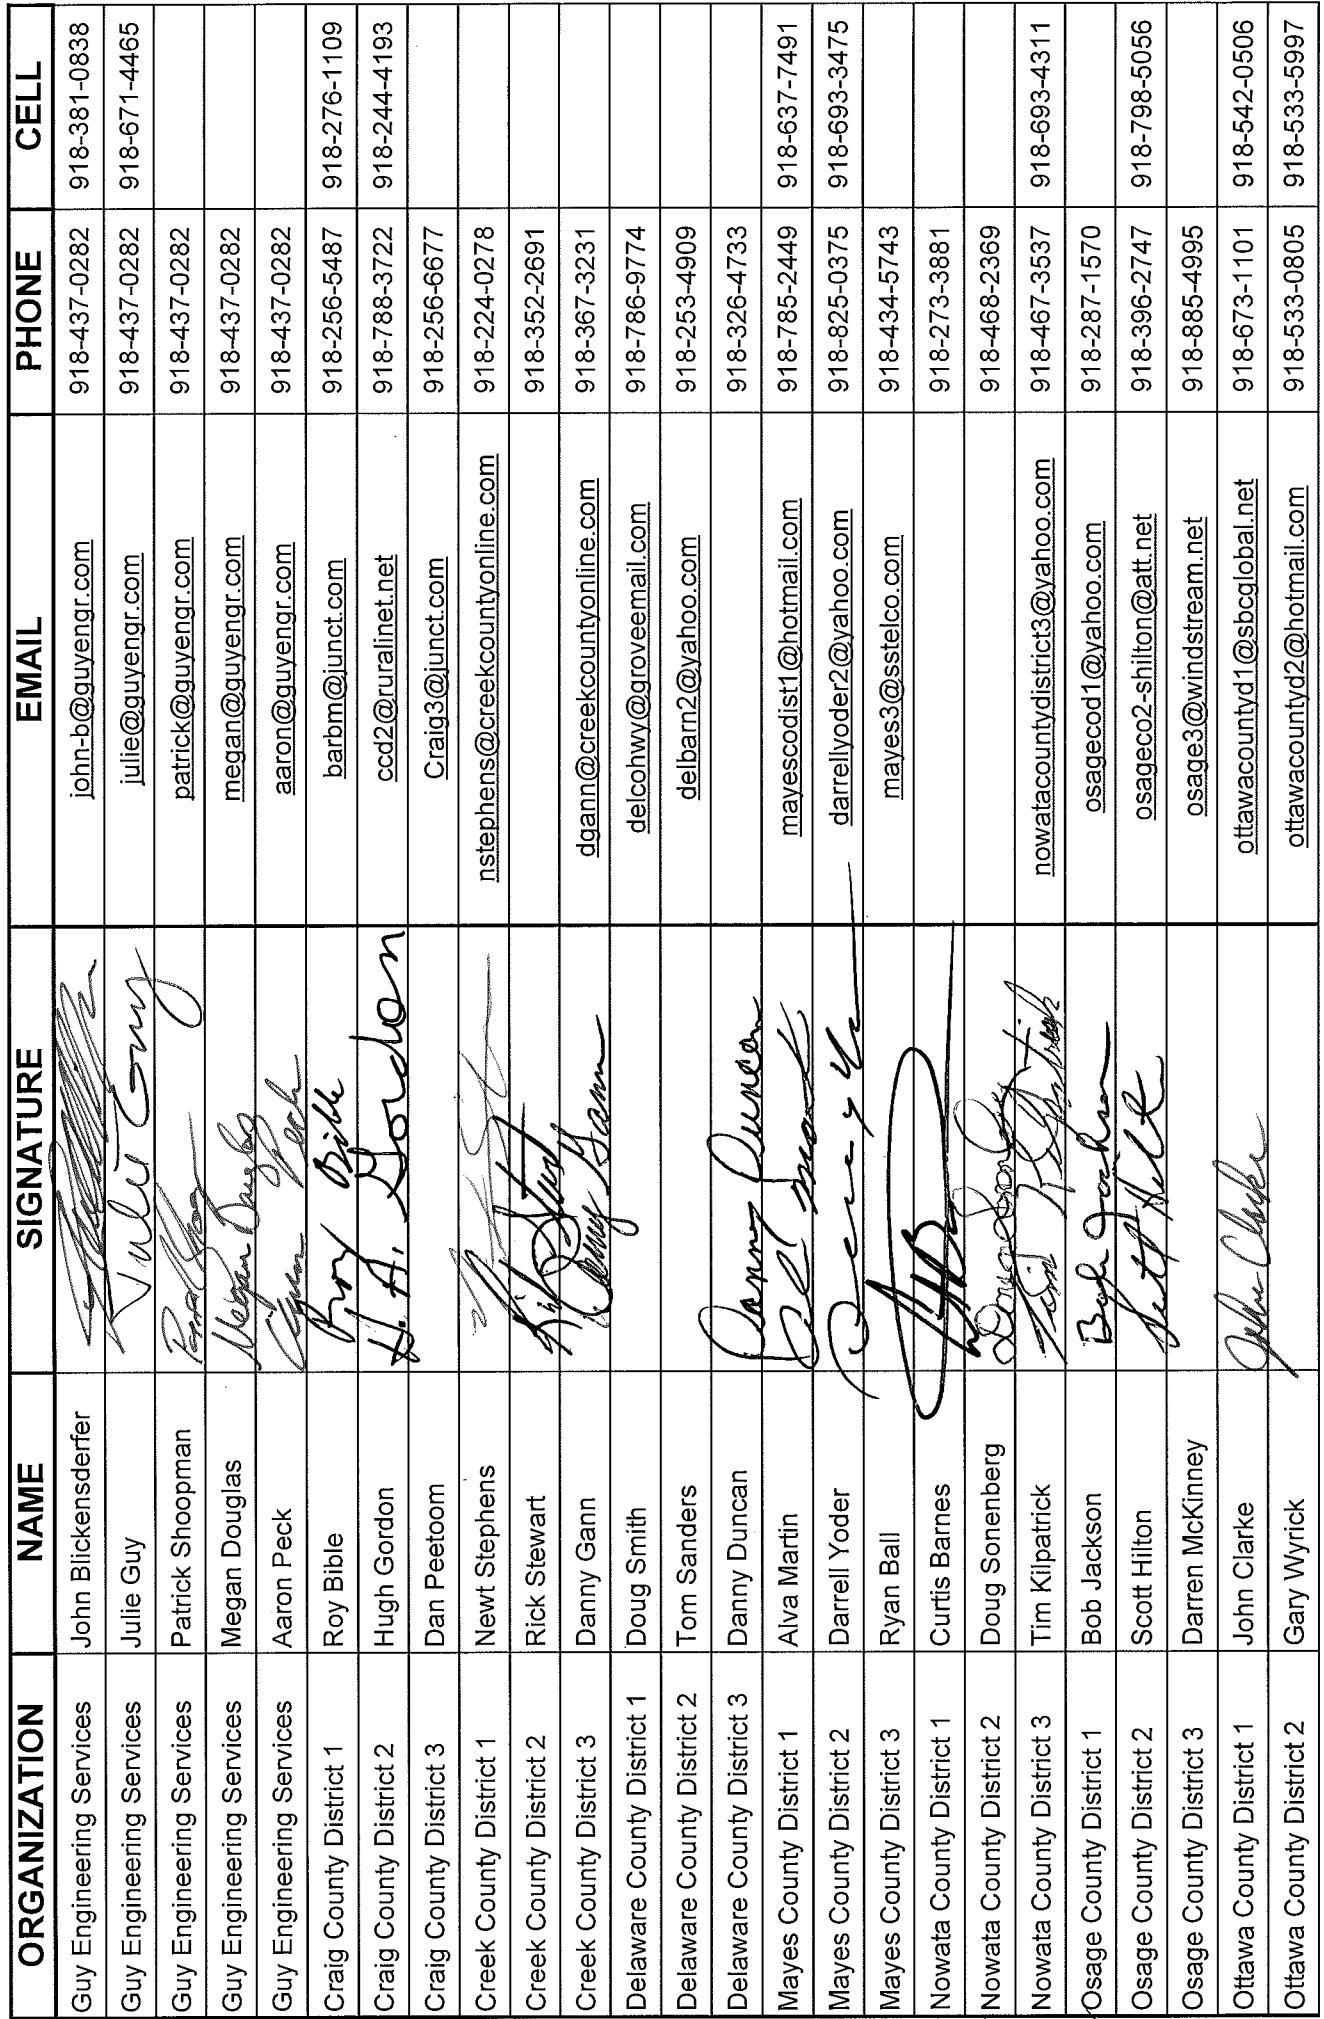 ORGANIZATION NAME SIGNATURE EMAIL PHONE CELL
Guy Engineering Services John Blickensderfer john-b@guyengr.com 918-437-0282 918-381-0838
Guy Engineering Services Julie Guy Julie Guy julie@guyengr.com 918-437-0282 918-671-4465
Guy Engineering Services Patrick Shoopman patrick@guyengr.com 918-437-0282
Guy Engineering Services Megan Douglas Megan Douglas megan@guyengr.com 918-437-0282
Guy Engineering Services Aaron Peck Aaron Peck aaron@guyengr.com 918-437-0282
Craig County District 1 Roy Bible Roy Bible barbm@junct.com 918-256-5487 918-276-1109
Craig County District 2 Hugh Gordon H. A. Gordon ccd2@ruralinet.net 918-788-3722 918-244-4193
Craig County District 3 Dan Peetoom Craig3@junct.com 918-256-6677
Creek County District 1 Newt Stephens nstephens@creekcountyonline.com 918-224-0278
Creek County District 2 Rick Stewart 918-352-2691
Creek County District 3 Danny Gann Danny Gann dgann@creekcountyonline.com 918-367-3231
Delaware County District 1 Doug Smith delcohwy@groveemail.com 918-786-9774
Delaware County District 2 Tom Sanders delbarn2@yahoo.com 918-253-4909
Delaware County District 3 Danny Duncan Danny Duncan 918-326-4733
Mayes County District 1 Alva Martin mayescodist1@hotmail.com 918-785-2449 918-637-7491
Mayes County District 2 Darrell Yoder darrellyoder2@yahoo.com 918-825-0375 918-693-3475
Mayes County District 3 Ryan Ball mayes3@sstelco.com 918-434-5743
Nowata County District 1 Curtis Barnes 918-273-3881
Nowata County District 2 Doug Sonenberg 918-468-2369
Nowata County District 3 Tim Kilpatrick Tim Kilpatrick nowatacountydistrict3@yahoo.com 918-467-3537 918-693-4311
Osage County District 1 Bob Jackson Bob Jackson osagecod1@yahoo.com 918-287-1570
Osage County District 2 Scott Hilton osageco2-shilton@att.net 918-396-2747 918-798-5056
Osage County District 3 Darren McKinney osage3@windstream.net 918-885-4995
Ottawa County District 1 John Clarke John Clarke ottawacountyd1@sbcglobal.net 918-673-1101 918-542-0506
Ottawa County District 2 Gary Wyrick ottawacountyd2@hotmail.com 918-533-0805 918-533-5997